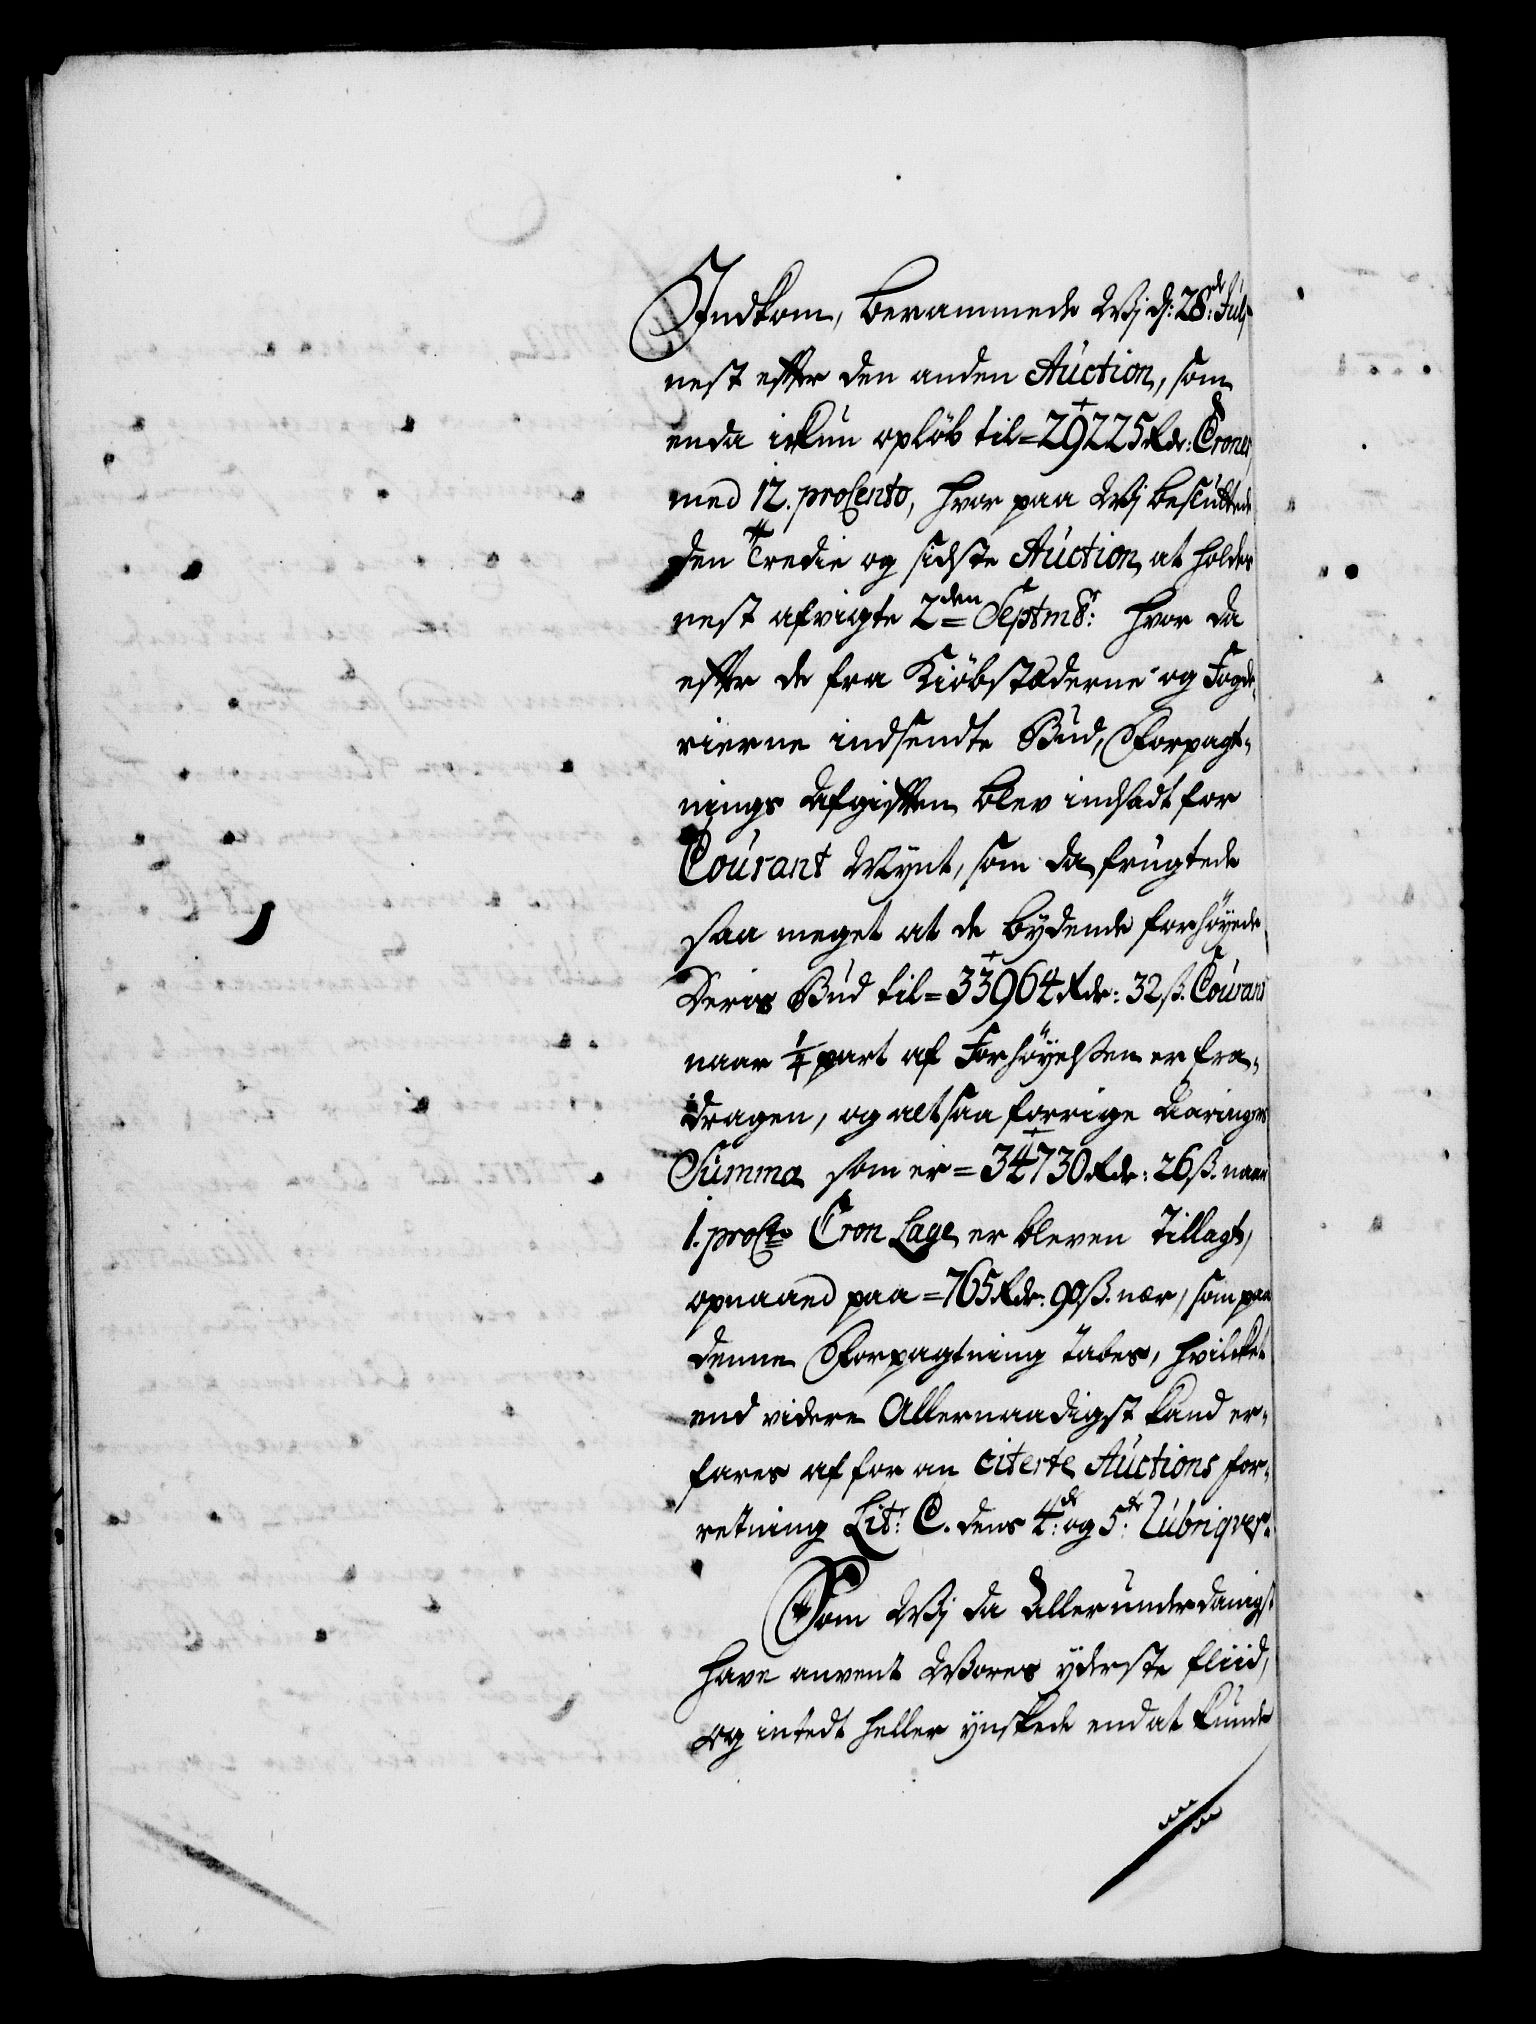 Indkom, berammede Wj d: 28de Julj
nest efter den anden Auction, som
enda ickun opløb til = 29225 Rdr: Croner
med 12. proCento, hvor paa Wj besluttede
den Tredie og sidste Auction at holdes
nest afvigte 2den Septmbr: hvor da
efter de fra Kiöbstæderne og Fogde,
rierne indsendte Bud, Forpagt,
nings Afgiften blev indsadt for
Courant Mynt, som da frugtede
saa meget at de bydende forhöyede
Deris Bud til = 33964 Rdr: 32 ß. Courant
naar 1/4 part af Forhöyelsen er fra,
dragen, og altsaa forrige Aaringers
Summa som er = 34730 Rdr: 26 ß. naar
1. proCto Cron Lage er bleven Tillagt,
opnaaed paa = 765 Rdr: 90 ß. nær, som paa
denne Forpagtning tabes, hvilcket
end videre Allernaadigst kand er,
fares af for an citerte Auctions for,
retning Lit: C. dens 4de og 5te Rubriqver.
Som Wj da Allerunderdanigst
have anvent Wores yderste fliid,
og intedt heller ynskede end at kunde